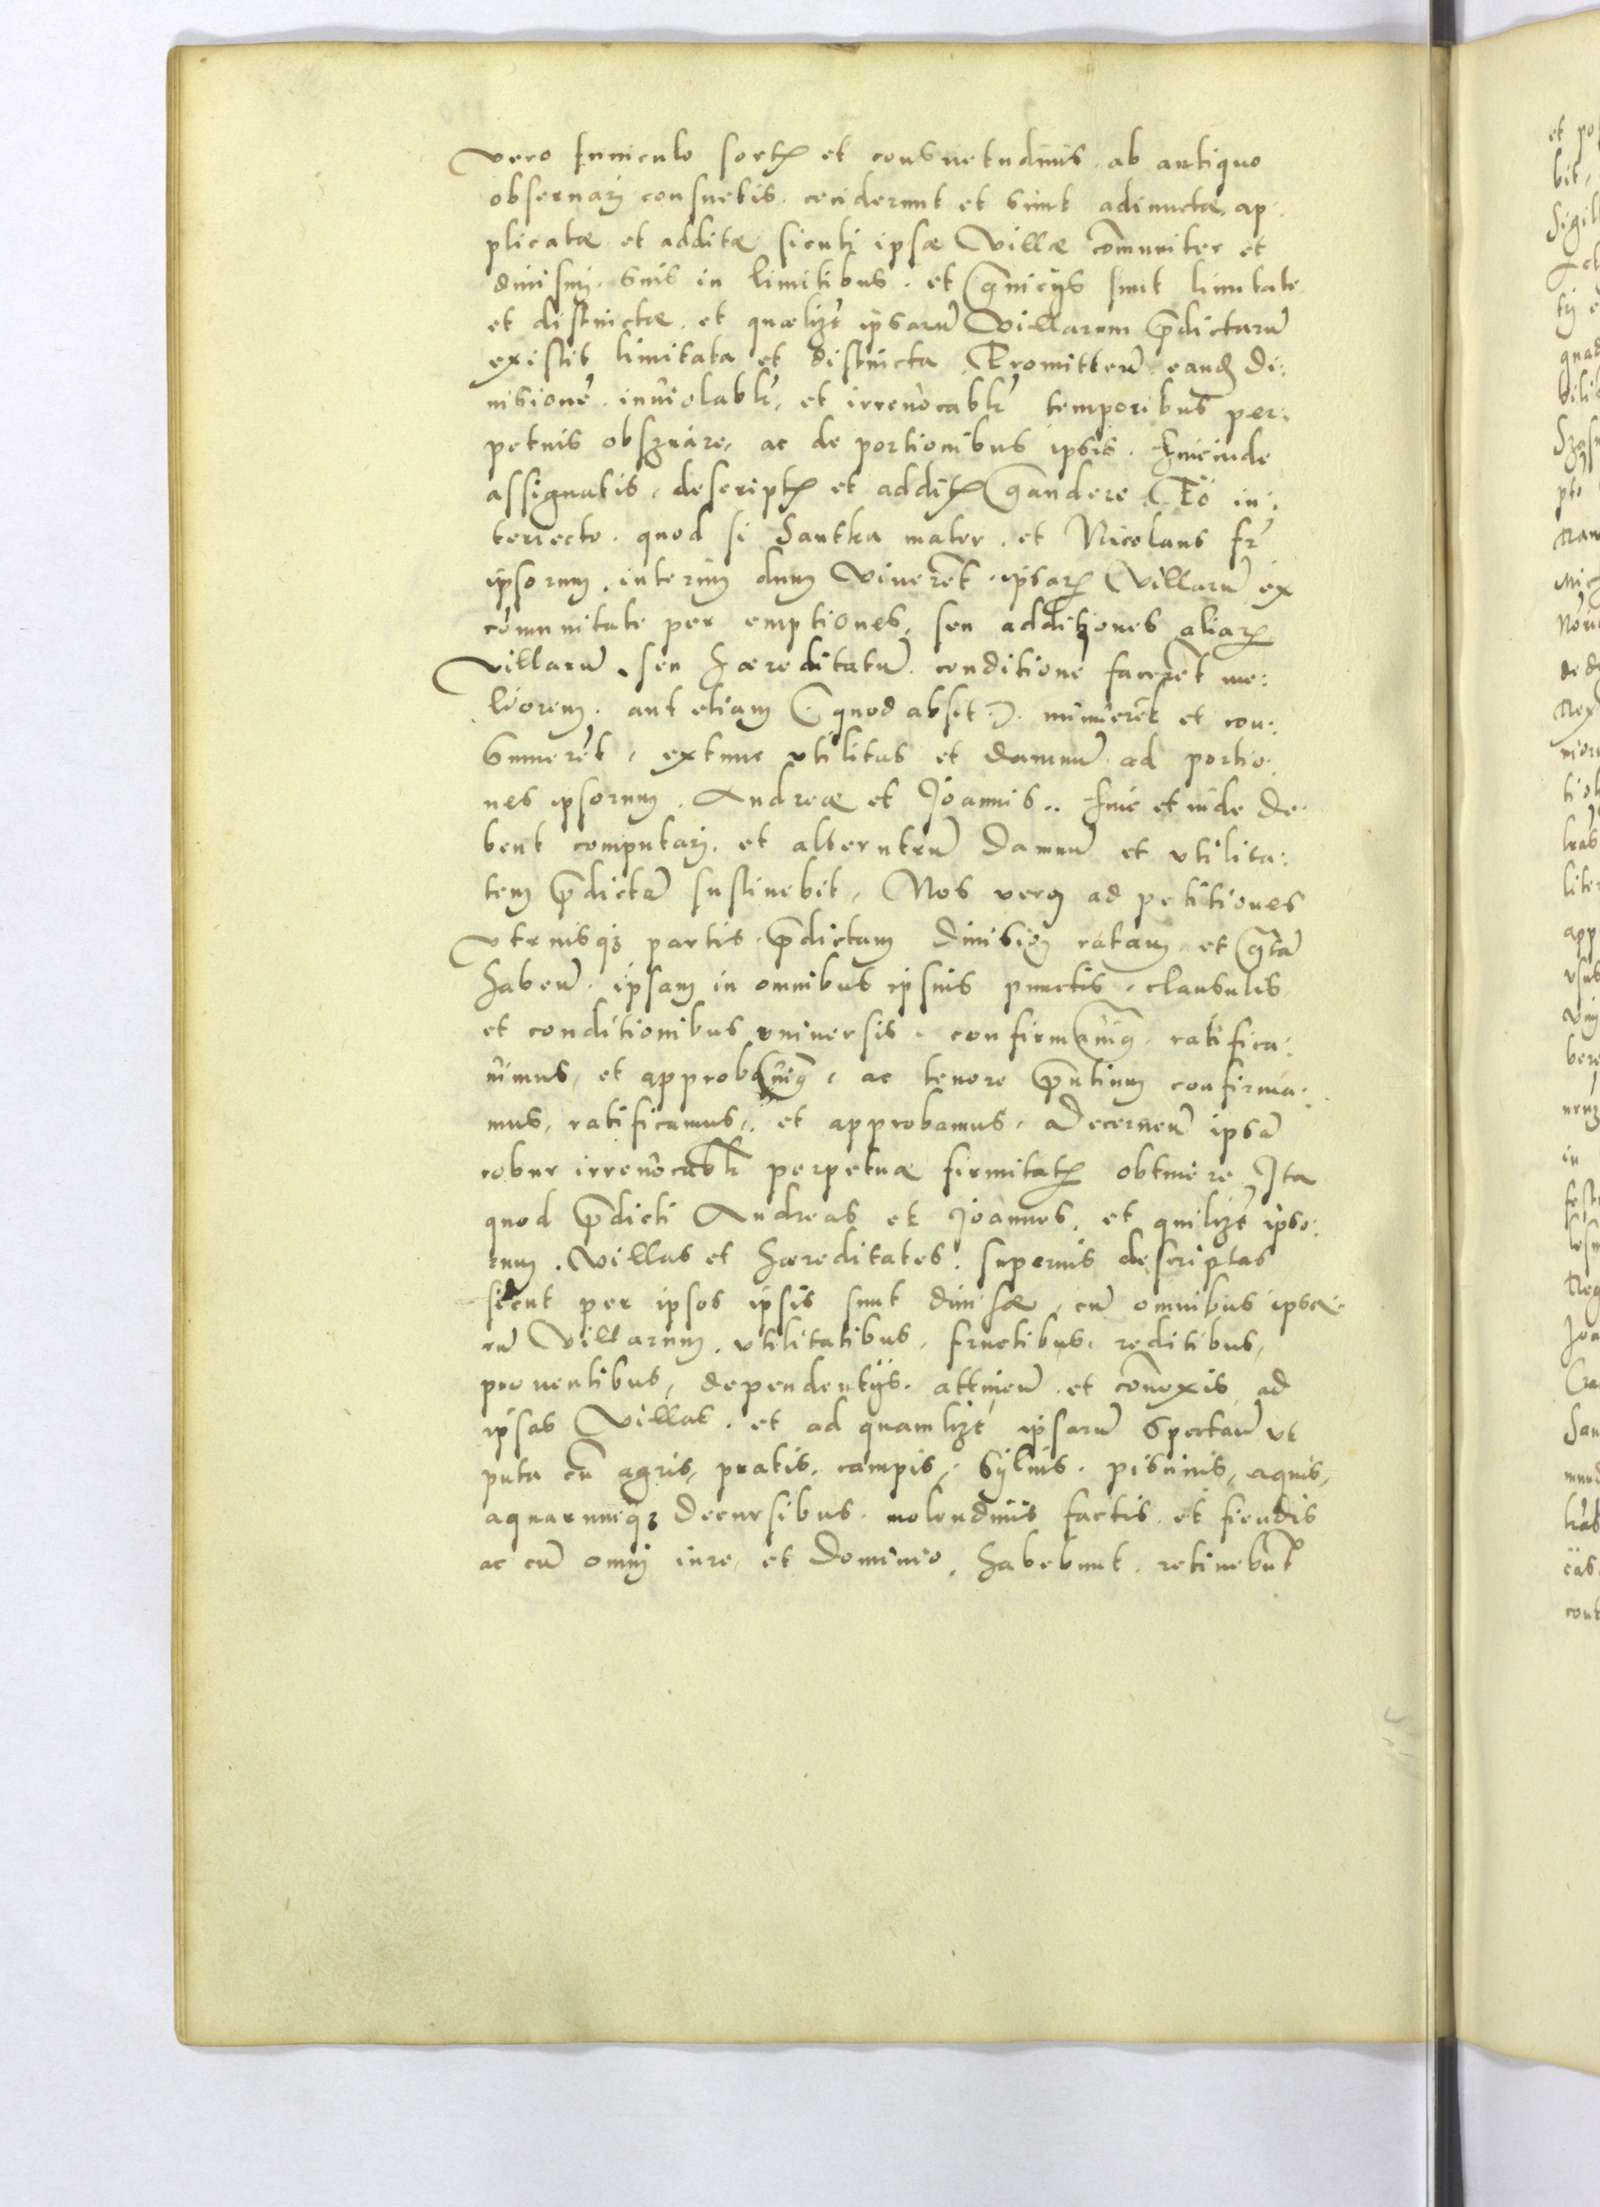 vero funiculo sortꝫ et consuetudinis. ab antiquo
obseruarj consuetis. ceciderunt et sunt adiunctæ, ap:
plicatæ et additæ sicuti ipsæ Villæ com̄uniter et
diuisim. suis in limitibus. et graniciis sunt limitate
et distinctæ. et quælibꝫ ipsarū Villarum p̄dictarū
existit limitata et distincta. Promitten̄. eandꝫ di:
uisionē. inuiolabłr, et irreuocabłr temporibus per:
petuis obseruare, ac de portionibus ipsis. hincinde
assignatis, descriptꝫ et additꝫ gaudere. Eo in:
teriecto. quod si Santka mater. et Nicolaus fr̄
ipsorum. interim dum Viuerēt. ipsarꝫ Villarū ex
cōmunitate per emptiones, seu additiones aliarꝫ
Villarū. seu hæreditatū. conditionē facerēt me:
liorem. aut etiam (quod absit). minuerēt et con:
sumerēt, extunc vtilitas et damnū ad portio:
nes ipsorum. Andreæ et Joannis.. hinc et inde de:
bent computarj. et alterutrū damnū et vtilita:
tem p̄dictā sustinebit, Nos vero ad petitiones
vtriusqꝫ partis. p̄dictam diuisionē ratam et gratā
haben̄. ipsam in omnibus ipsius punctis. clausulis
et conditionibus vniuersis. confirmauimꝰ. ratifica:
uimus, et approbauimꝰ, ac tenore p̄ntium confirma:
mus, ratificamus, et approbamus, Decernen̄ ipsā
robur irreuocabłr perpetuæ firmitatꝫ obtinere, Ita
quod p̄dicti Andreas et Joannes, et quilibꝫ ipso:
rum. Villas et hæreditates. superius descriptas
sicut per ipsos ipsis sunt diuisæ, cū omnibus ipsa:
rū Villarum. vtilitatibus, fructibus. reditibus,
prouentibus, dependentiis. attinen̄. et con̄exis ad
ipsas Villas. et ad quamlibꝫ ipsarū spectan̄ vt
puta cū agris, pratis. campis, Syluis. piscinis, aquis,
aquarumqꝫ decursibus. molendinis factis. et fiendis
ac cū omnj iure, et dominio, habebunt. retinebūt